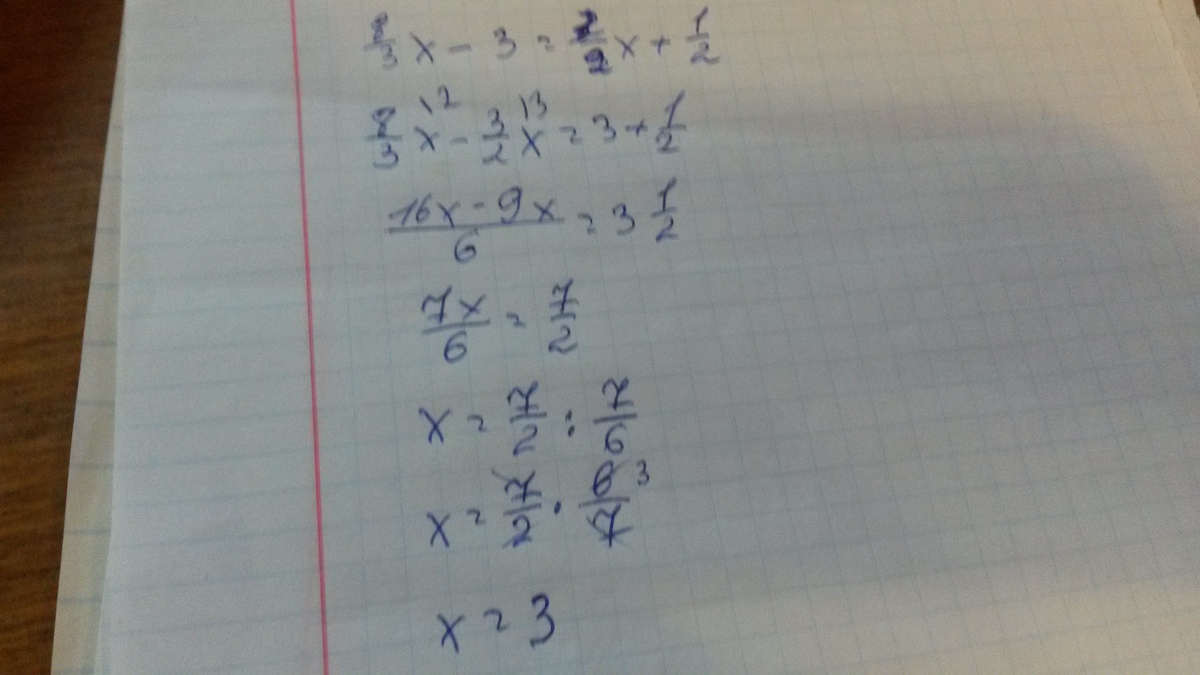 8/3 x - 3 = 3/2 x + 1/2
8/3 x \2 - 3/2 x \3 = 3 + 1/2
(16x - 9x)/6 = 3 1/2
7x/6 = 7/2
x = 7/2 : 7/6
x = 7/2 · 6/7 3
x = 3